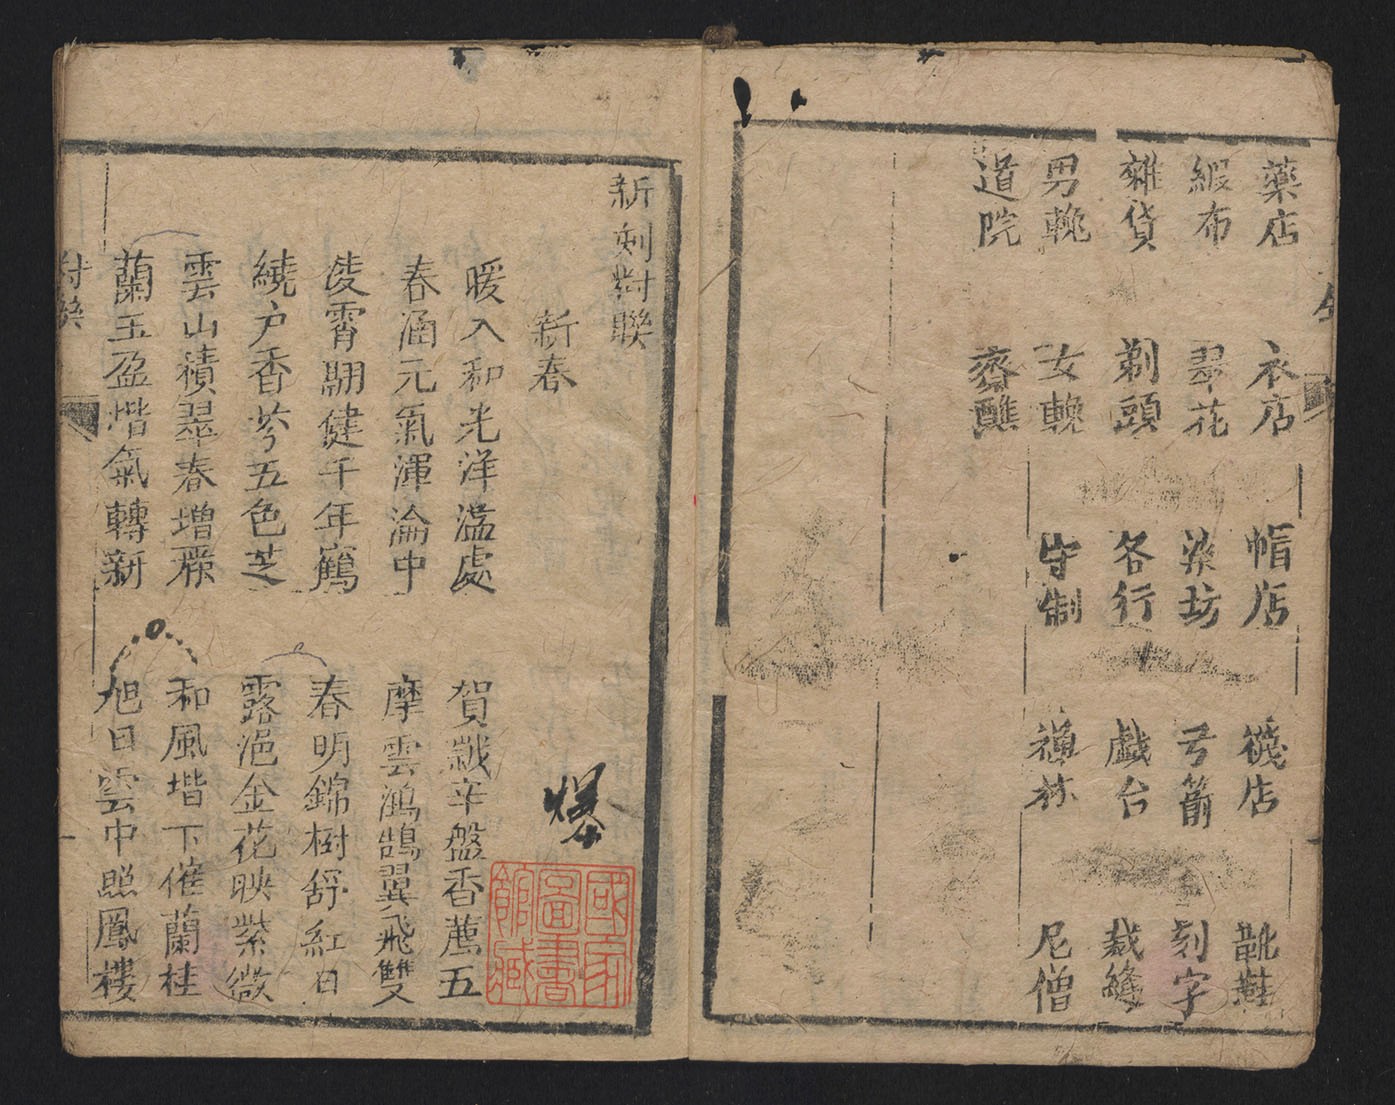 藥店　衣店　帽店　襪店　靴鞋
緞布　翠花　染坊　弓箭　刻字
雜貨　剃頭　各行　戲台　裁縫
男輓　女輓　守制　禪林　尼僧
道院　齋醮
新刻對聯
新春
暖入和光洋溢處　賀戩辛盤香薦五
春涵元氣渾淪中　摩雲鴻鵠翼飛雙
凌霄翮健千年鶴　春明錦樹舒紅日
繞户香芬五色芝　露浥金花映紫微
雲山積翠春增麗　和風堦下催蘭桂
蘭玉盈堦氣轉新　旭日雲中照鳳樓
國家圖書館藏